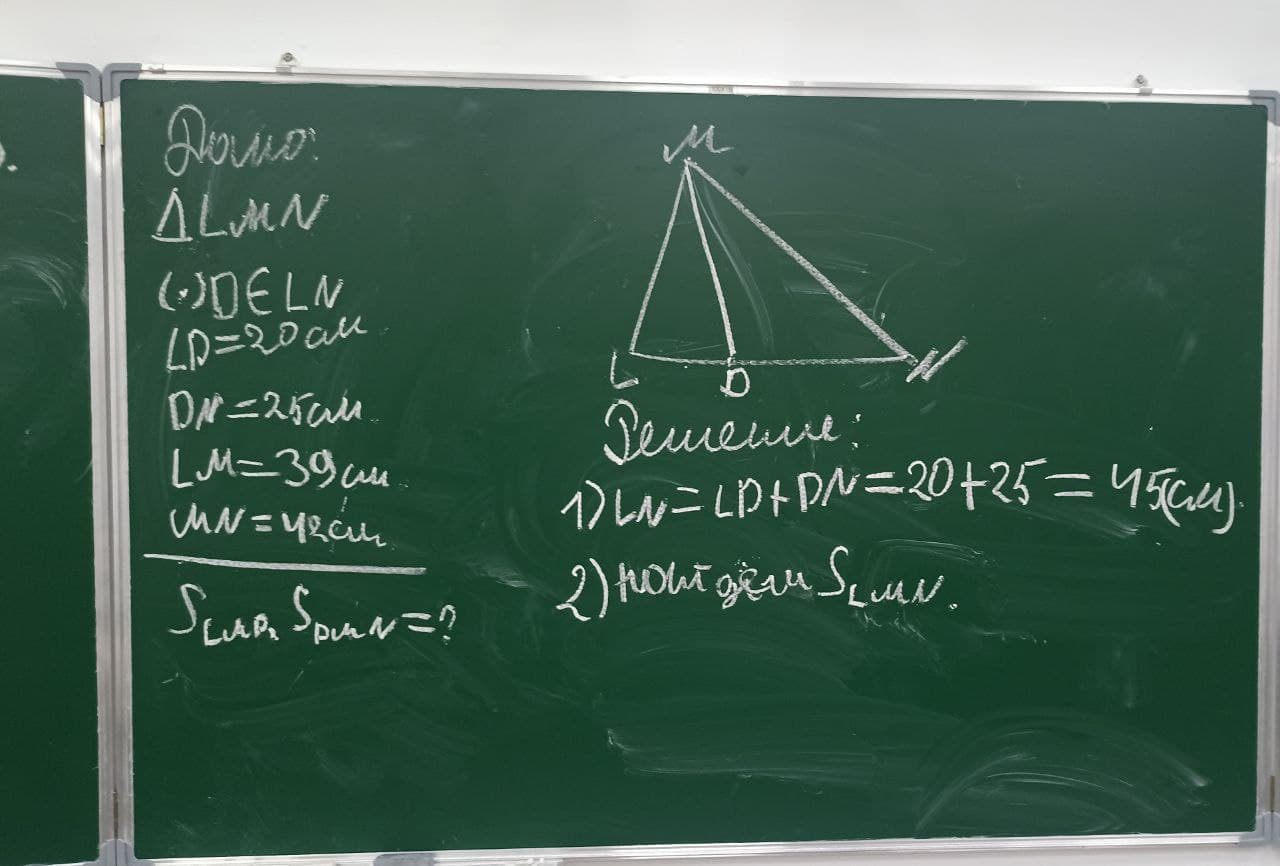 Дано:
ΔLMN
(·)D∈LN
LD=20см
DN=25см
LM=39см
MN=42см
S_LMD, S_DMN=?
M
L
D
N
Решение:
1) LN=LD+DN=20+25=45(см).
2) найдём S_LMN.